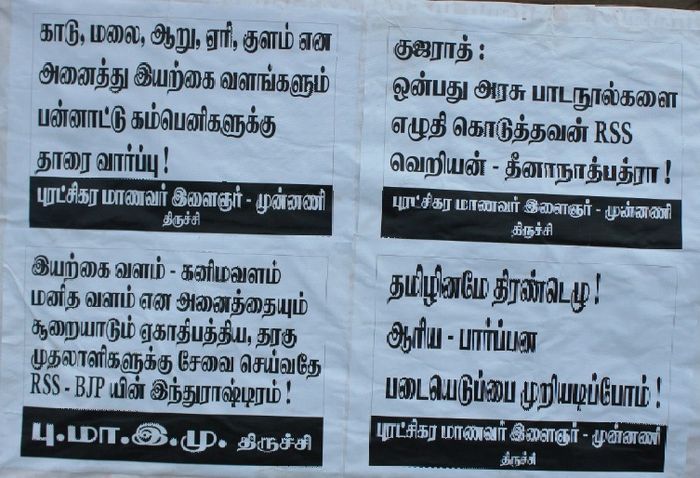 காடு, மலை, ஆறு, ஏரி, குளம் என
அனைத்து இயற்கை வளங்களும்
பன்னாட்டு கம்பெனிகளுக்கு
தாரை வார்ப்பு !
புரட்சிகர மாணவர் இளைஞர் - முன்னணி
திருச்சி
குஜராத் :
ஒன்பது அரசு பாடநூல்களை
எழுதி கொடுத்தவன் RSS
வெறியன் - தீனாநாத்பத்ரா !
புரட்சிகர மாணவர் இளைஞர் - முன்னணி
திருச்சி
இயற்கை வளம் - கனிமவளம்
மனித வளம் என அனைத்தையும்
சூறையாடும் ஏகாதிபத்திய, தரகு
முதலாளிகளுக்கு சேவை செய்வதே
RSS - BJP யின் இந்துராஷ்டிரம் !
பு.மா.இ.மு. திருச்சி
தமிழினமே திரண்டெழு !
ஆரிய - பார்ப்பன
படையெடுப்பை முறியடிப்போம் !
புரட்சிகர மாணவர் இளைஞர் - முன்னணி
திருச்சி